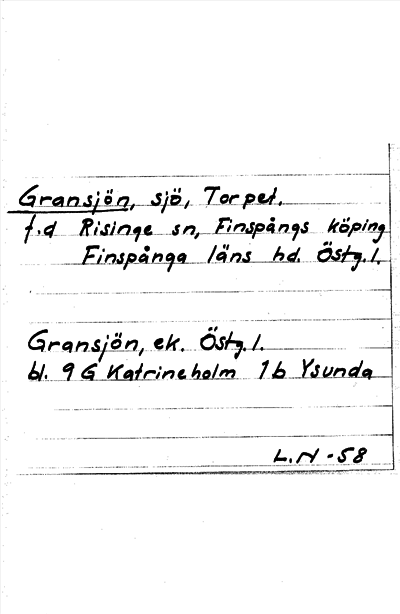 Gransjön, sjö, Torpet.
f.d Risinge sn, Finspångs köping
Finspånga läns hd. Östg.l.
Gransjön, ek. Östg.l.
bl. 9 G Katrineholm 1b Ysunda
L.N -58